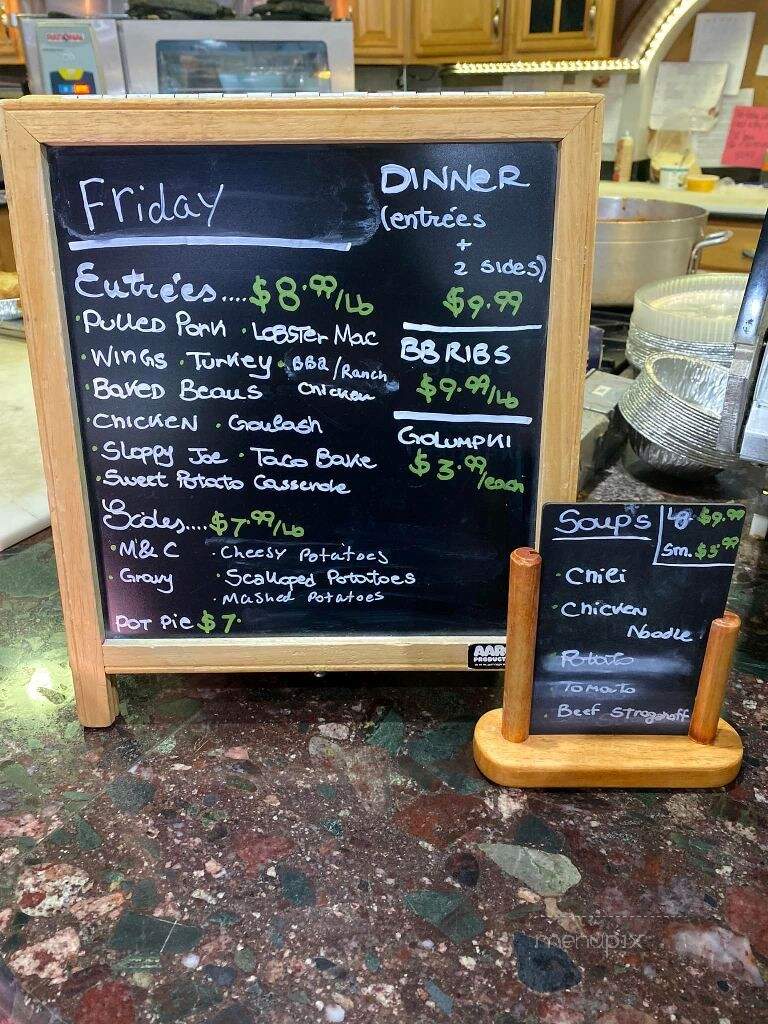 RATIONAL
Friday
Entrées.... $8.99/Lb
·Pulled Pork ·Lobster Mac
·Wings ·Turkey ·BBQ/Ranch Chicken
·Baked Beans
·Chicken ·Goulash
·Sloppy Joe ·Taco Bake
·Sweet Potato Casserole
Sides.... $7.99/Lb
·M&C ·Cheesy Potatoes
·Gravy ·Scalloped Potatoes
·Mashed Potatoes
Pot Pie $7.
DINNER
(entrées
+
2 sides)
$9.99
BB RIBS
$9.99/Lb
GOLUMPKI
$3.99/each
AARCO
PRODUCTS
Soups
Lg $9.99
Sm. $5.99
·Chili
·Chicken
Noodle
·Potato
·Tomato
·Beef Stroganoff
menupix